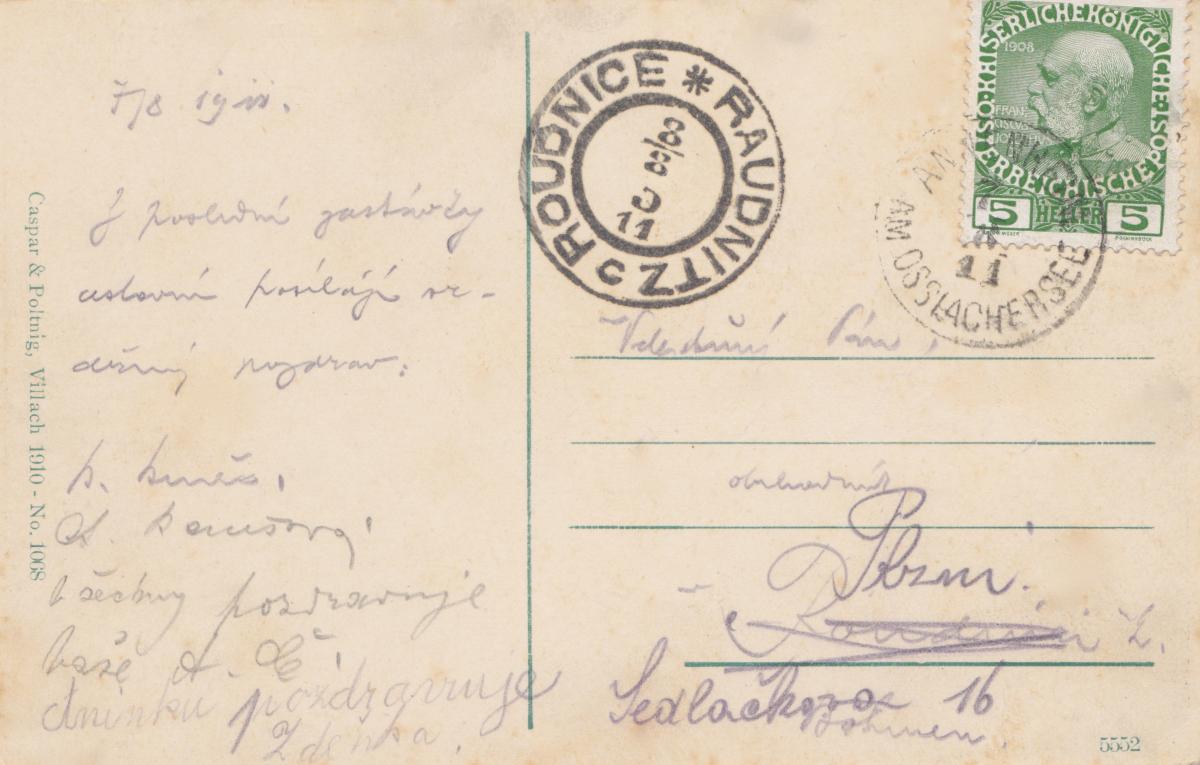 5/8 1911.
Z poslední zastávky
cestovní posílají sr-
dečný pozdrav:
A.
všechny pozdravuje
Vaše A. Č.
Aninku pozdravuje
Zdenka.
Caspar & Poltnig, Villach 1910 - No. 1068
ROUDNICE * RAUDNITZ
8/8
11
KAISERLICHE KÖNIGLICHE ÖSTERREICHISCHE POST
1908
FRANCISCUS
5 HELLER 5
AM OSSIACHERSEE
11
Velectěný Pán,
obchodník
Plzni.
Roudnici
Sedláčkova 16
Böhmen.
5552